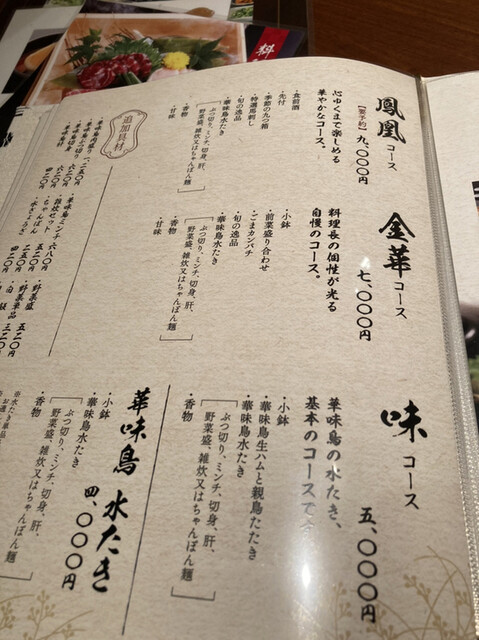 鳳凰コース
【要予約】九、〇〇〇円
心ゆくまで楽しめる
華やかなコース。
・食前酒
・先付
・季節の九つ箱
・特選馬刺し
・旬の逸品
・華味鳥水たき
ぶつ切り、ミンチ、切身、肝、
野菜盛、雑炊又はちゃんぽん麺
・香物
・甘味
金華コース
七、〇〇〇円
料理長の個性が光る
自慢のコース。
・小鉢
・前菜盛り合わせ
・ごまカンパチ
・旬の逸品
・華味鳥水たき
ぶつ切り、ミンチ、切身、肝、
野菜盛、雑炊又はちゃんぽん麺
・香物
・甘味
味コース
五、〇〇〇円
華味鳥の水たき、
基本のコースで
・小鉢
・華味鳥生ハムと親鳥たたき
・華味鳥水たき
ぶつ切り、ミンチ、切身、肝、
野菜盛、雑炊又はちゃんぽん麺
・香物
華味鳥 水たき
四、〇〇〇円
・小鉢
・華味鳥水たき
ぶつ切り、ミンチ、切身、肝、
野菜盛、雑炊又はちゃんぽん麺
・香物
追加具材
・華味鳥ミンチ 六八〇円
・雑炊セット 五二〇円
・ちゃんぽん 二五〇円
・水ぎょうざ 四二〇円
・野菜盛
・野菜単品 五二〇円
三二〇円
※水たき単品